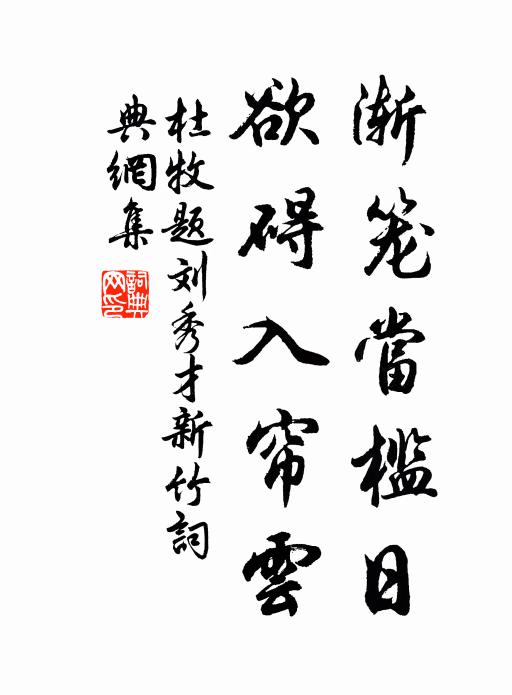 渐笼當槛日
欲碍入帘雲
杜牧题刘秀才新竹詞
典網集
詞典
网印